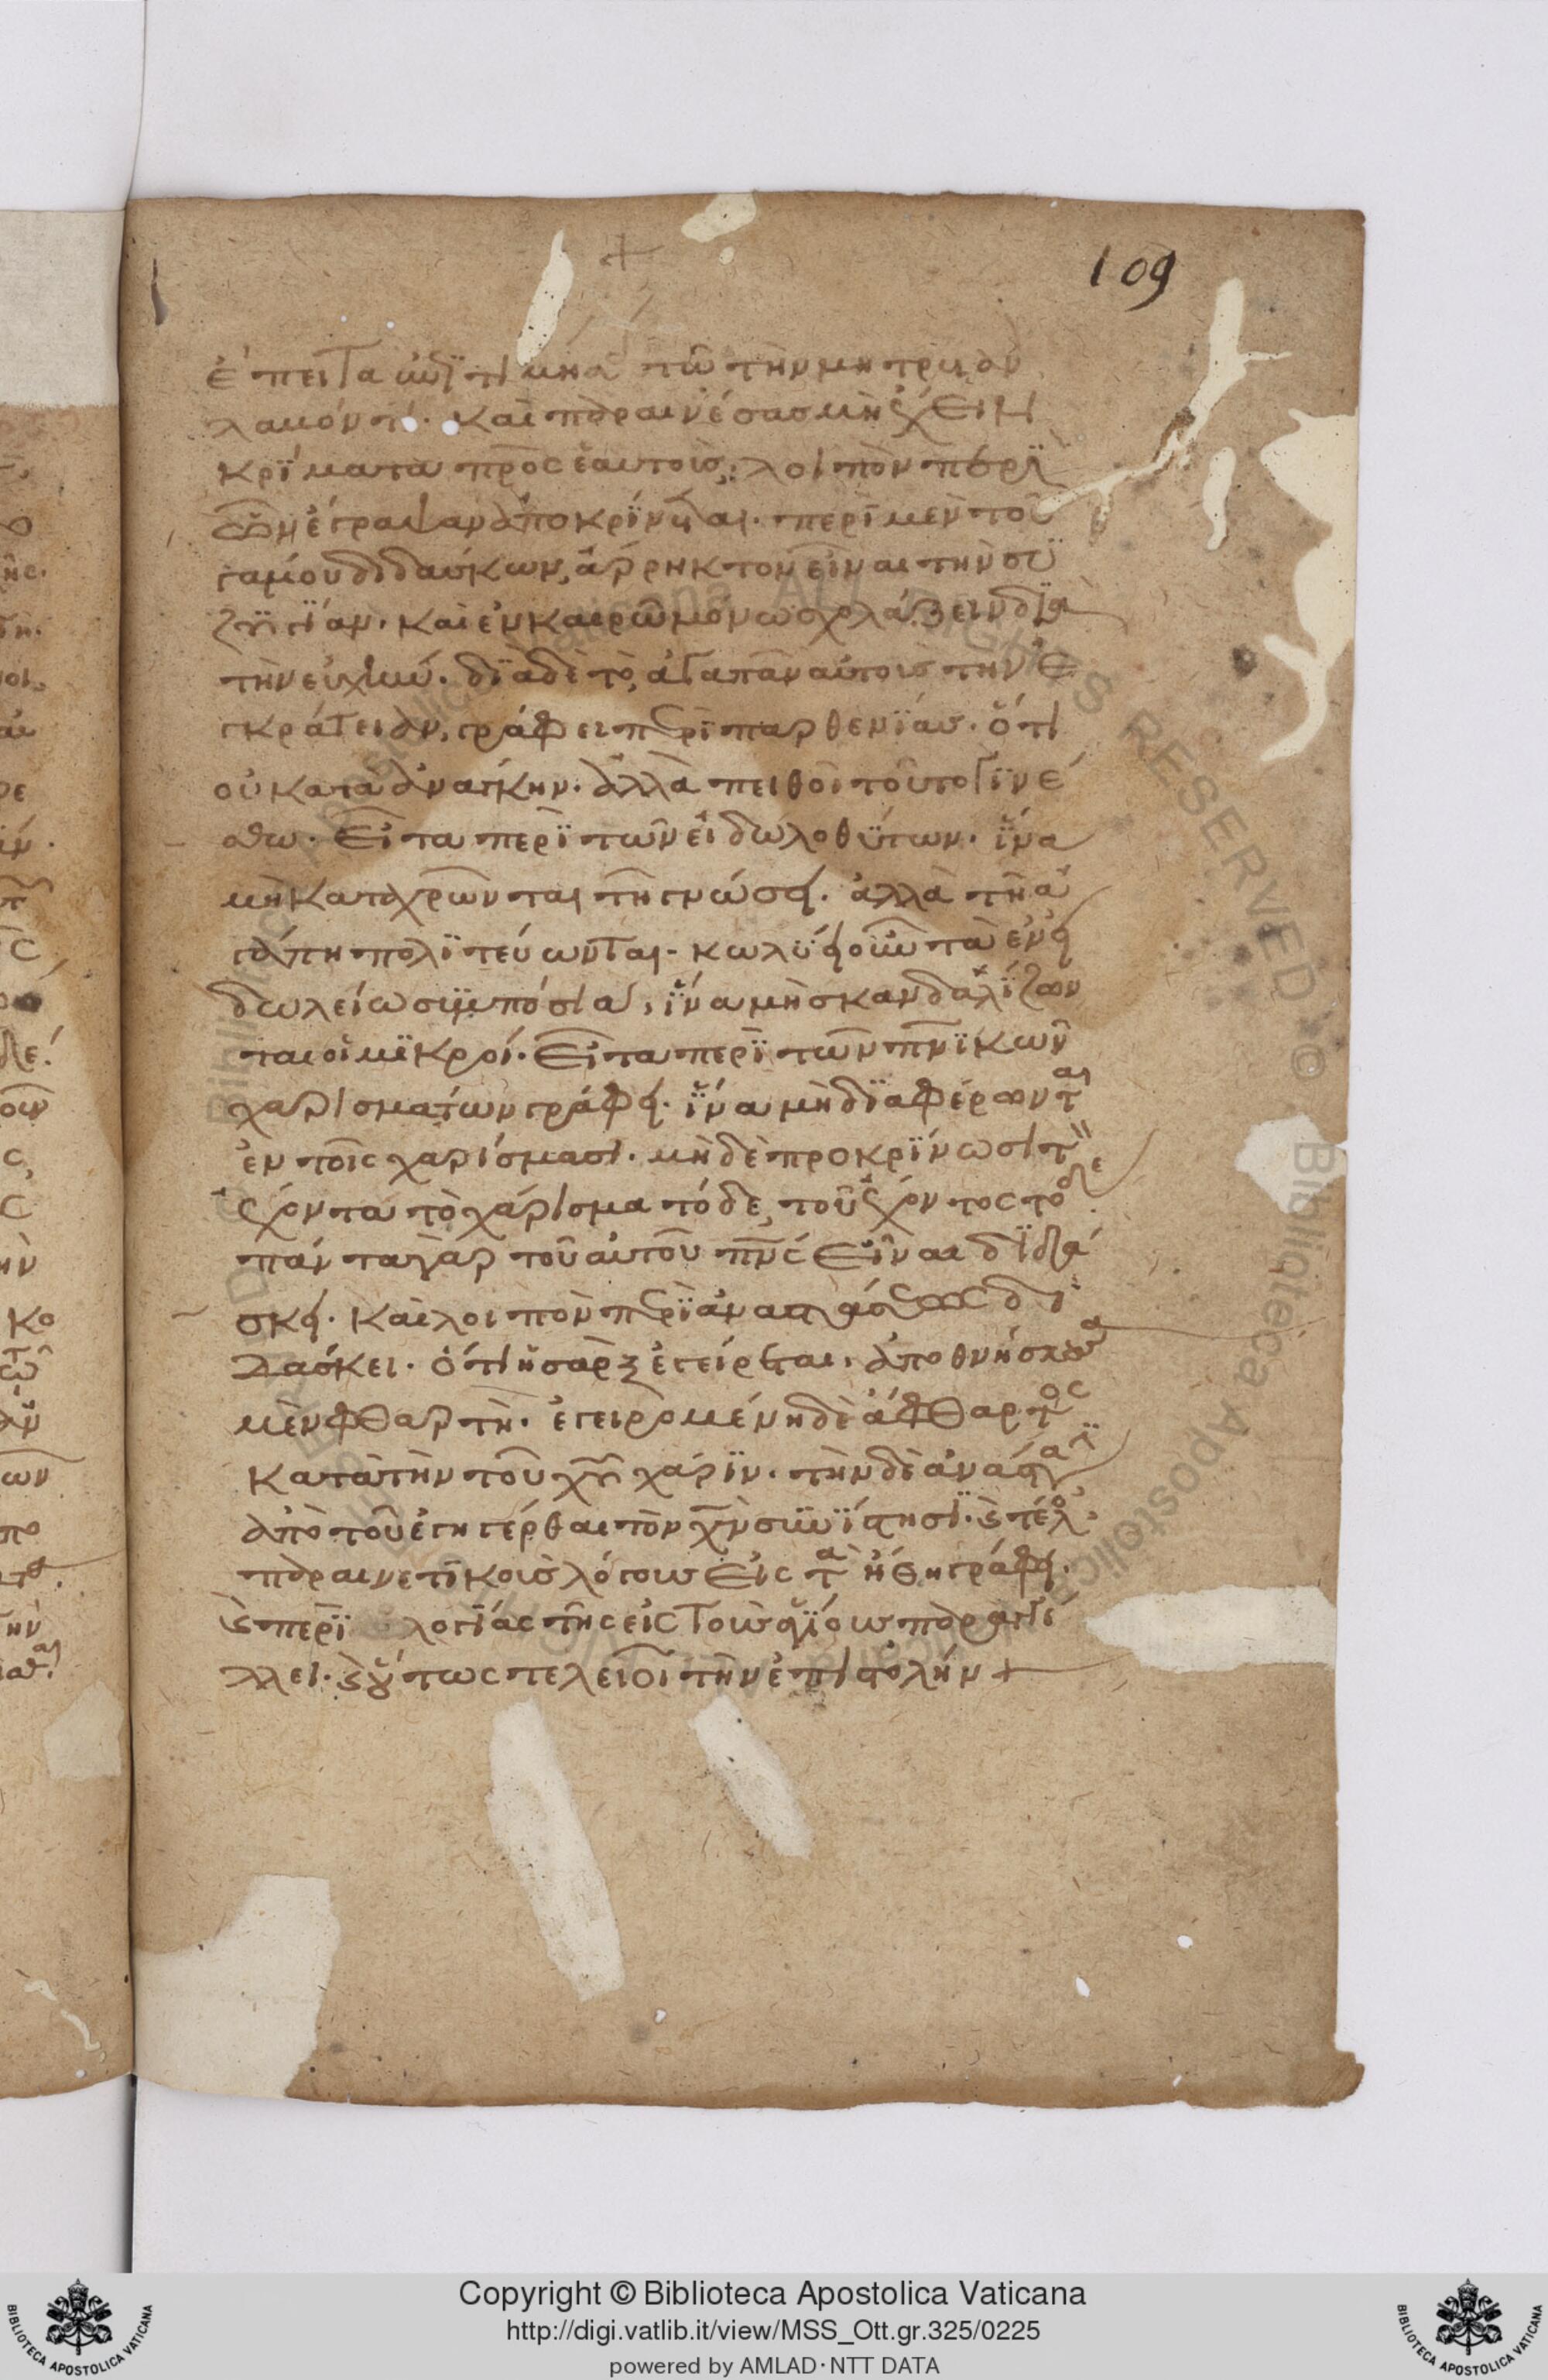 109
ἔπειτα ἐπιτιμήσας τῶ τὴν μητρυιὰν
λαμόντι. καὶ παραινέσας μὴ ἔχειν
κρίματα πρὸς ἑαυτοὺς. λοιπὸν περὶ
ὧν ἔγραψαν ἀποκρίνεται. περὶ μὲν τοῦ
γάμου διδάσκων, ἄρρηκτον εἶναι τὴν συ
ζυγίαν. καὶ ἐν καιρῶ μόνω σχολάζειν διὰ
τὴν εὐχὴν. διὰ δὲ τὸ ἀγαπᾶν αὐτοὺς τὴν ἐ
γκράτειαν, γράφει περὶ παρθενίας. ὅτι
οὐ κατὰ ἀνάγκην. ἀλλὰ πειθοῖ τοῦτο γινέ
σθω. εἶτα περὶ τῶν εἰδωλοθύτων. ἵνα
μὴ καταχρῶνται τῆ γνώσει. ἀλλὰ τῆ ἀ
γάπη πολιτεύωνται. κωλύει οὖν τὰ ἐν εἰ
δωλείω συμπόσια, ἵνα μὴ σκανδαλίζων
ται οἱ μικροί. εἶτα περὶ τῶν πνικῶν
χαρισμάτων γράφει. ἵνα μὴ διαφέρωνται
ἐν τοῖς χαρίσμασι. μὴ δὲ προκρίνωσι τὸν
ἔχοντα τὸ χάρισμα τόδε, τοῦ ἔχοντος τόδε.
πάντα γὰρ τοῦ αὐτοῦ πνς εἶναι διδά
σκει. καὶ λοιπὸν περὶ ἀναστάσεως δι
δάσκει. ὅτι ἡ σὰρξ ἐγείρεται. ἀποθνήσκουσα
μὲν φθαρτὴ. ἐγειρομένη δὲ ἄφθαρτος
κατὰ τὴν τοῦ χυ χάριν. τὴν δὲ ἀνάστασιν
ἀπὸ τοῦ ἐγηγέρθαι τὸν χν συνίστησι. καὶ τέλος
παραινετικοῖς λόγοις εἰς τὰ ἤθη γράφει.
καὶ περὶ λογίας τῆς εἰς τοὺς ἁγίους παραγγέ
λλει. καὶ οὕτως τελειοῖ τὴν ἐπιστολήν +
Copyright © Biblioteca Apostolica Vaticana
http://digi.vatlib.it/view/MSS_Ott.gr.325/0225
powered by AMLAD·NTT DATA